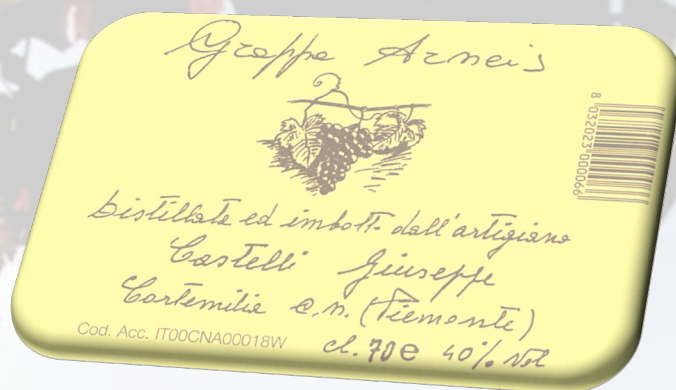 Grappa Arneis
8 032023 000066
Distillata ed imbott. dall'artigiano
Castelli Giuseppe
Cortemilia C.N. (Piemonte)
Cod. Acc. IT00CNA00018W
cl. 70 e 40% Vol